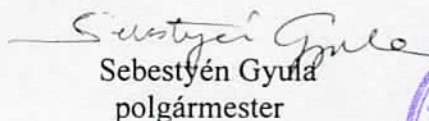 Sebestyén Gyula
Sebestyén Gyula
polgármester